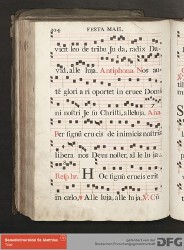 FESTA MAII.
vicit leo de tribu Juda, radix Da-
vid, alleluja. Antiphona. Nos au-
té gloriari oportet in cruce Domi-
ni nostri Jesu Christi, alleluja. Aña
Per signũ crucis de inimicis nostris
libera nos Deus noster, alleluja.
Resp. br. Hoc signũ crucis erit
in cælo, Alleluja, alleluja. V. Cũ
Benediktinerabtei St. Matthias
Trier
DFG